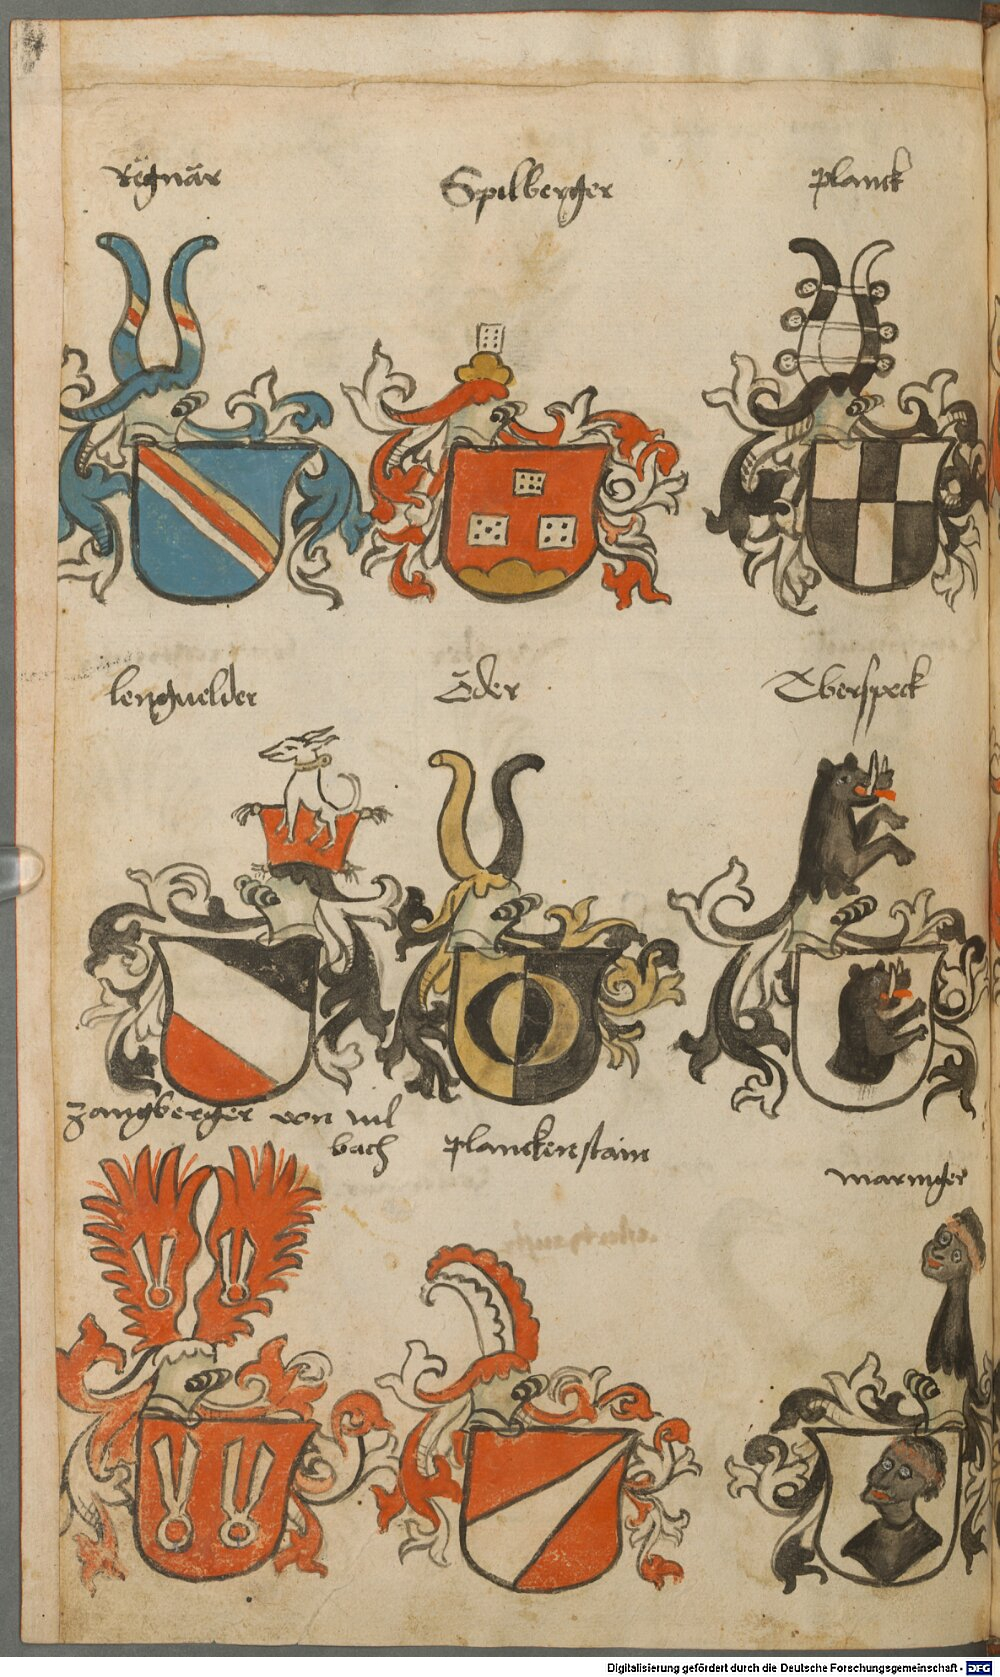 Regnär
Spilberger
Planck
lengvelder
Öder
Eberspeck
Zangberger von vil
bach
Planckenstain
Maringer
Digitalisierung gefördert durch die Deutsche Forschungsgemeinschaft - DFG